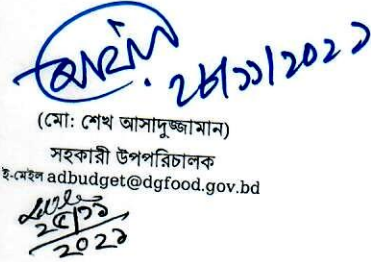 ২৮/১১/২০২১
(মো: শেখ আসাদুজ্জামান)
সহকারী উপপরিচালক
ই-মেইল adbudget@dgfood.gov.bd
২৫/১১
২০২১